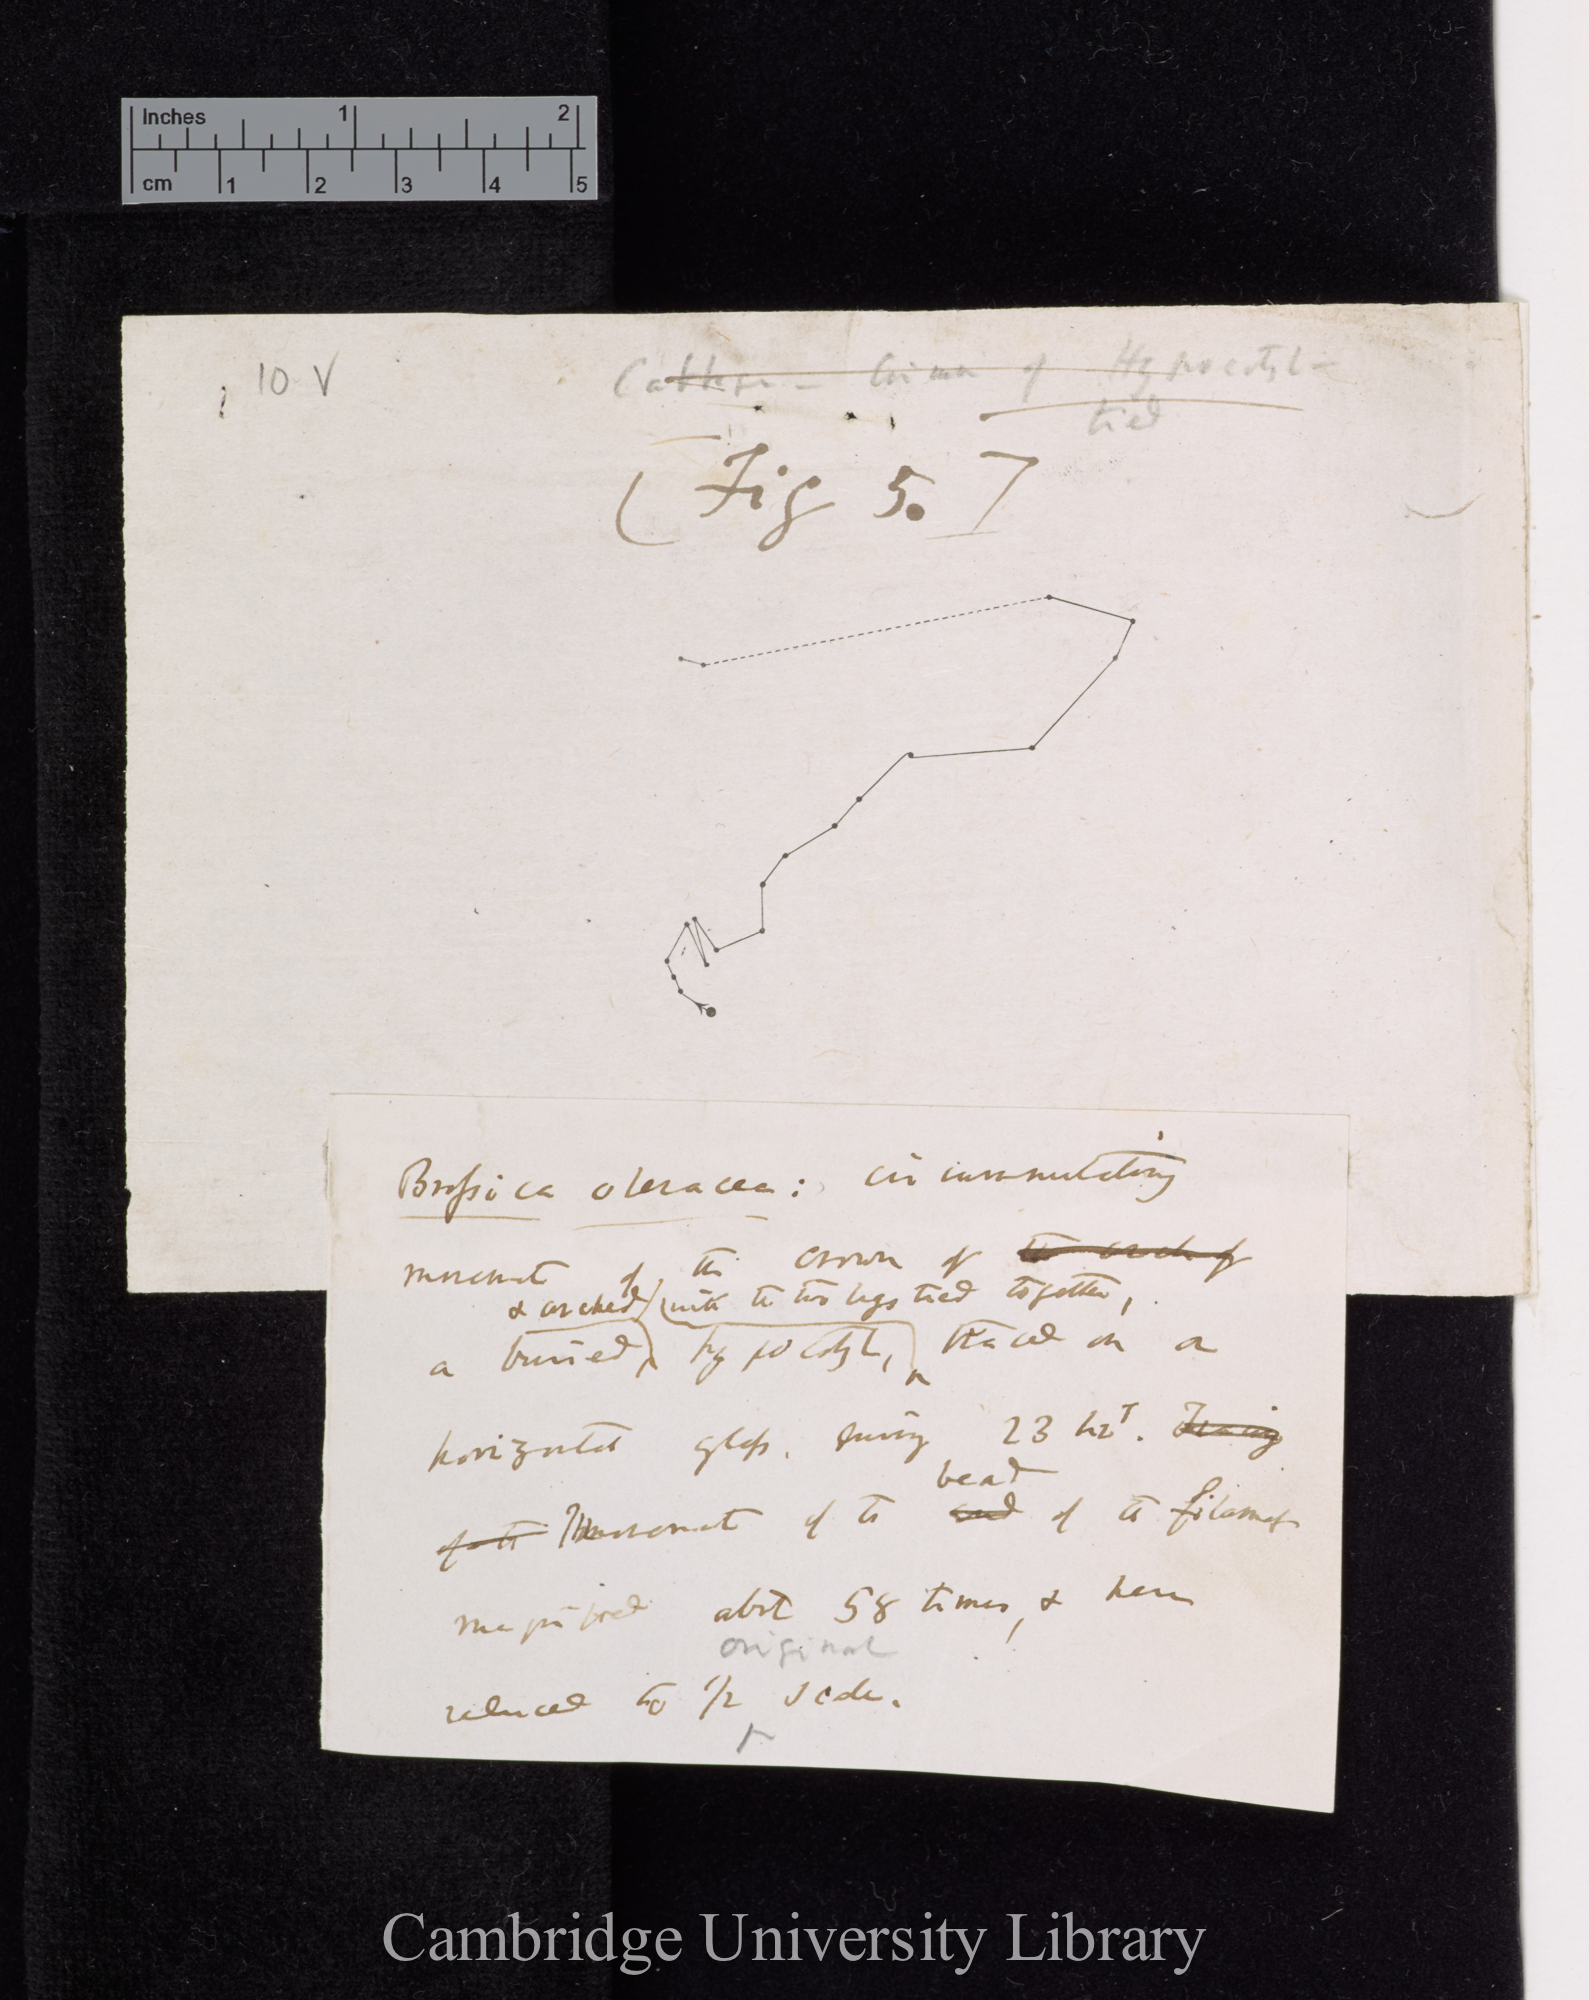 Inches 1 2
cm 1 2 3 4 5
10 V
Cabbage — circum of Hypocotyl —
tied
(Fig 5.]
Brassica oleracea: circumnutating
movement of the crown of the arch of
& arched with the two legs tied together,
a buried hypocotyl, traced on a
horizontal glass, during 23 hrs. Tracing
of the Movement of the end of the filament
bead
magnified abt 58 times, & here
original
reduced to 1/2 scale.
Cambridge University Library